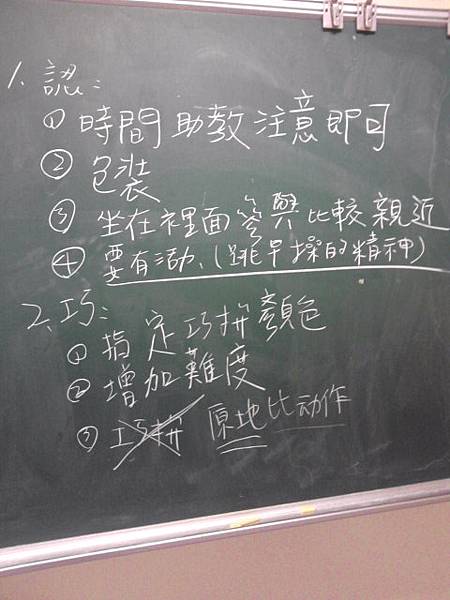 1、認：
① 時間助教注意即可
② 包裝
③ 坐在裡面參與比較親近
④ 要有活力、(跳早操的精神)
2、巧：
① 指定巧拼顏色
② 增加難度
③ 巧拼 原地比动作